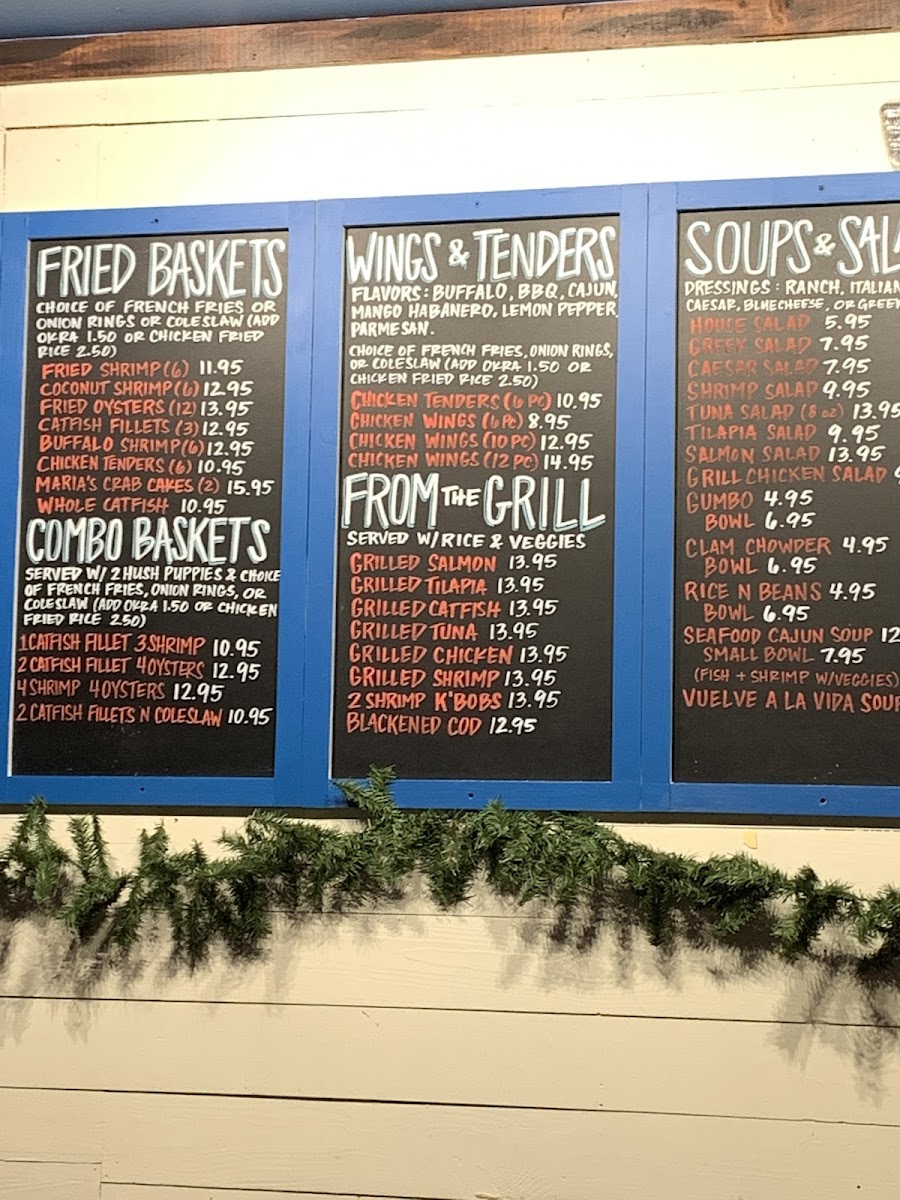 FRIED BASKETS
CHOICE OF FRENCH FRIES OR
ONION RINGS OR COLESLAW (ADD
OKRA 1.50 OR CHICKEN FRIED
RICE 2.50)
FRIED SHRIMP (6) 11.95
COCONUT SHRIMP (6) 12.95
FRIED OYSTERS (12) 13.95
CATFISH FILLETS (3) 12.95
BUFFALO SHRIMP (6) 12.95
CHICKEN TENDERS (6) 10.95
MARIA'S CRAB CAKES (2) 15.95
WHOLE CATFISH 10.95
COMBO BASKETS
SERVED W/ 2 HUSH PUPPIES & CHOICE
OF FRENCH FRIES, ONION RINGS, OR
COLESLAW (ADD OKRA 1.50 OR CHICKEN
FRIED RICE 2.50)
1 CATFISH FILLET 3 SHRIMP 10.95
2 CATFISH FILLET 4 OYSTERS 12.95
4 SHRIMP 4 OYSTERS 12.95
2 CATFISH FILLETS 'N COLESLAW 10.95
WINGS & TENDERS
FLAVORS: BUFFALO, BBQ, CAJUN,
MANGO HABANERO, LEMON PEPPER,
PARMESAN.
CHOICE OF FRENCH FRIES, ONION RINGS,
OR COLESLAW (ADD OKRA 1.50 OR
CHICKEN FRIED RICE 2.50)
CHICKEN TENDERS (6 PC) 10.95
CHICKEN WINGS (6 PC) 8.95
CHICKEN WINGS (10 PC) 12.95
CHICKEN WINGS (12 PC) 14.95
FROM THE GRILL
SERVED W/ RICE & VEGGIES
GRILLED SALMON 13.95
GRILLED TILAPIA 13.95
GRILLED CATFISH 13.95
GRILLED TUNA 13.95
GRILLED CHICKEN 13.95
GRILLED SHRIMP 13.95
2 SHRIMP K'BOBS 13.95
BLACKENED COD 12.95
SOUPS & SAL
DRESSINGS: RANCH, ITALIAN
CAESAR, BLUECHEESE, OR GREEK
HOUSE SALAD 5.95
GREEK SALAD 7.95
CAESAR SALAD 7.95
SHRIMP SALAD 9.95
TUNA SALAD (8 oz) 13.95
TILAPIA SALAD 9.95
SALMON SALAD 13.95
GRILL CHICKEN SALAD
GUMBO 4.95
BOWL 6.95
CLAM CHOWDER 4.95
BOWL 6.95
RICE N BEANS 4.95
BOWL 6.95
SEAFOOD CAJUN SOUP 12
SMALL BOWL 7.95
(FISH + SHRIMP W/VEGGIES)
VUELVE A LA VIDA SOUP